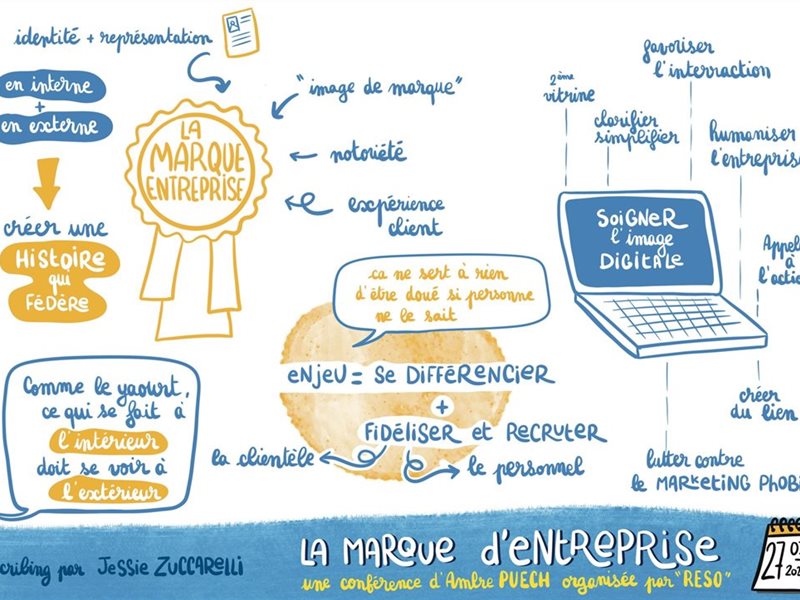 identité + représentation
en interne
+
en externe
créer une
HISTOIRE
qui
FÉDÈRE
LA
MARQUE
ENTREPRISE
"image de marque"
notoriété
expérience
client
2ème
vitrine
clarifier
simplifier
favoriser
l'interraction
humaniser
l'entreprise
SOIGNER
l'image
DIGITALE
Appel
à
l'actio
créer
du lien
lutter contre
le MARKETING PHOBI
ca ne sert à rien
d'être doué si personne
ne le sait
ENJEU = SE DIFFÉRENCIER
+
FIDÉLISER et RECRUTER
la clientèle
le personnel
Comme le yaourt,
ce qui se fait à
l'intérieur
doit se voir à
l'extérieur
cribing par Jessie ZUCCARELLI
LA MARQUE d'ENTREPRISE
une conférence d'Ambre PUECH organisée par "RESO"
27